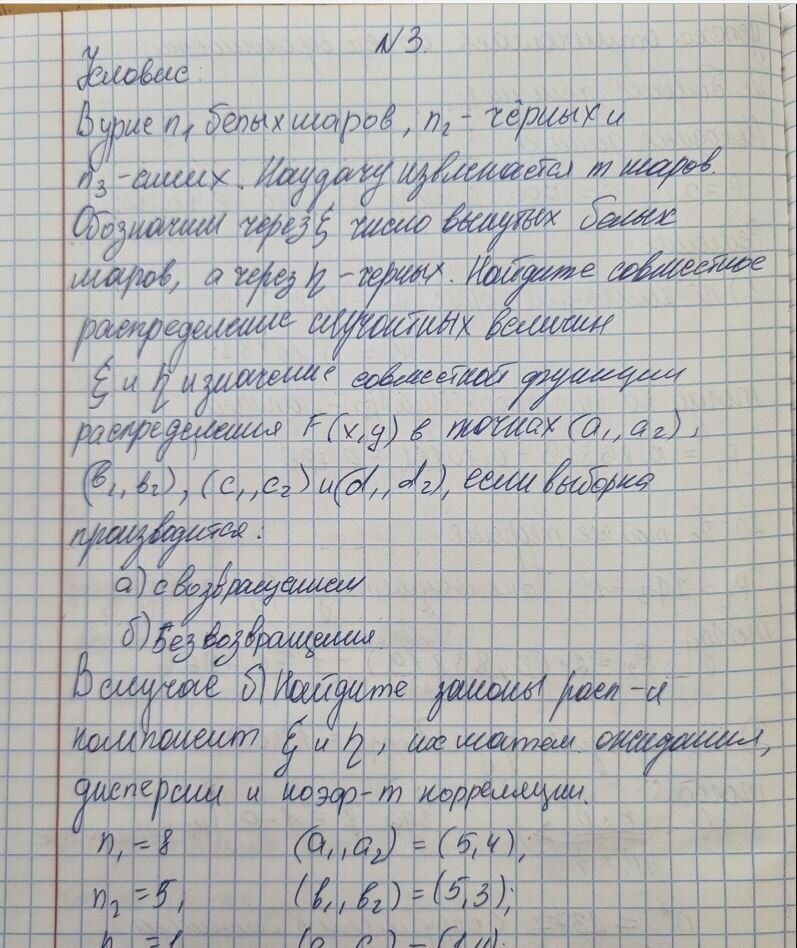 N 3.
Условие:
В урне n₁ белых шаров, n₂ - чёрных и
n₃ - синих. Наудачу извлекается m шаров.
Обозначим через ξ число вынутых белых
шаров, а через η - черных. Найдите совместное
распределение случайных величин
ξ и η и значение совместной функции
распределения F(x,y) в точках (a₁,a₂),
(в₁,в₂), (c₁,c₂) и (d₁,d₂), если выборка
производится:
а) с возвращением
б) Без возвращения.
В случае б) Найдите законы расп-я
компонент ξ и η, их матем. ожидания,
дисперсии и коэф-т корреляции.
n₁ = 8 (a₁,a₂) = (5,4);
n₂ = 5; (в₁,в₂) = (5,3);